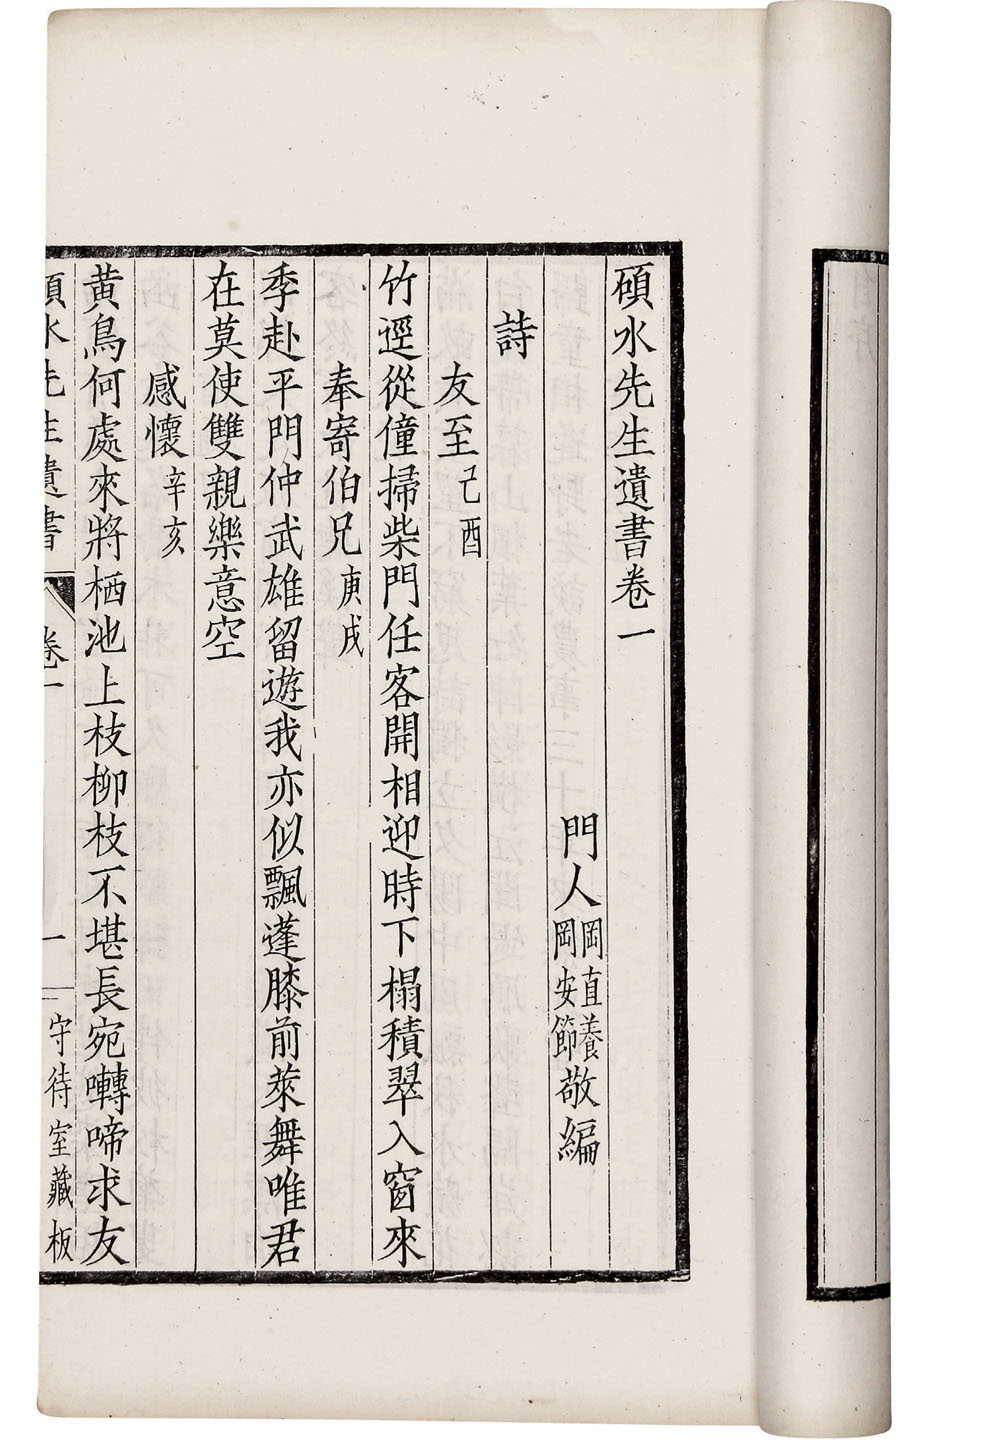 碩水先生遺書卷一
門人岡直養岡安節敬編
詩
友至己酉
竹逕從僮掃柴門任客開相迎時下榻積翠入窗來
奉寄伯兄庚戌
季赴平門仲武雄留遊我亦似飄蓬膝前萊舞唯君
在莫使雙親樂意空
感懷辛亥
黃鳥何處來將栖池上枝柳枝不堪長宛囀啼求友
碩水先生遺書 卷一 一 守待室藏板